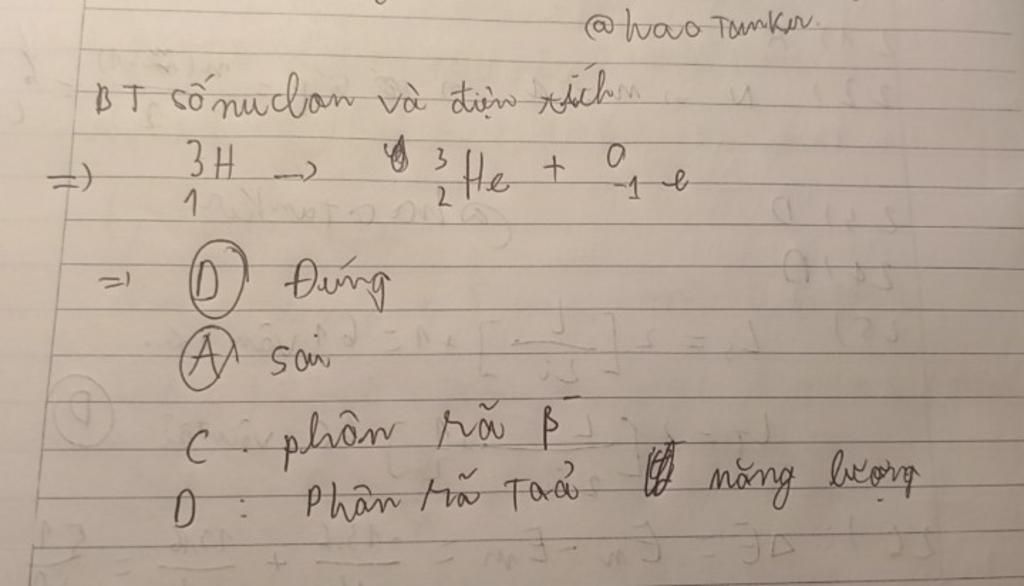 @haoTamKer
BT số nuclan và điện tích
=> ³₁H -> ³₂He + ⁰₋₁e
=> D Đúng
A sai
C. phân rã β⁻
D: Phân rã Toả năng lượng